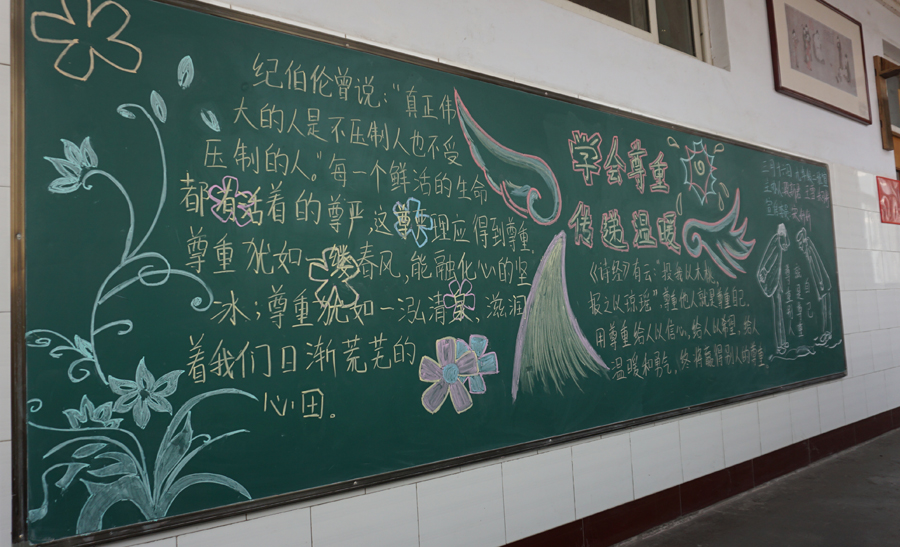 纪伯伦曾说："真正伟
大的人是不压制人也不受
压制的人。"每一个鲜活的生命
都有活着的尊严,这尊严理应得到尊重
尊重犹如一缕春风,能融化心的坚
冰;尊重犹如一泓清泉、滋润
着我们日渐荒芜的
心田。
学会尊重
传递温暖
《诗经》有云:"投我以木桃,
报之以琼瑶"尊重他人就是尊重自己.
用尊重给人以信心,给人以希望,给人
温暖和勇气,终将赢得别人的尊重。
尊重自己
尊重别人